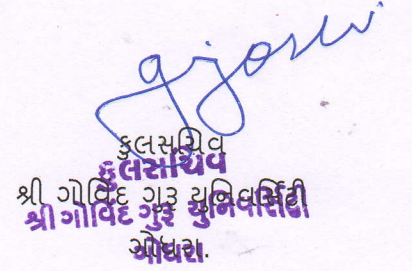 gjoshi
કુલસચિવ
કુલસચિવ
શ્રી ગોવિંદ ગુરૂ યુનિવર્સિટી
શ્રી ગોવિંદ ગુરૂ યુનિવર્સિટી
ગોધરા.
ગોધરા.